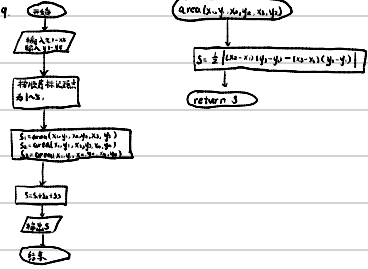 9.
开始
输入x1-x5
输入y1-y5
按顺序标记端点
为1~5.
S₁=area(x₁,y₁,x₂,y₂,x₃,y₃)
S₂=area(x₁,y₁,x₃,y₃,x₄,y₄)
S₃=area(x₁,y₁,x₄,y₄,x₅,y₅)
S=S₁+S₂+S₃
输出S
结束
area(x₁,y₁,x₂,y₂,x₃,y₃)
S=½|(x₂-x₁)(y₃-y₁)-(x₃-x₁)(y₂-y₁)|
return S